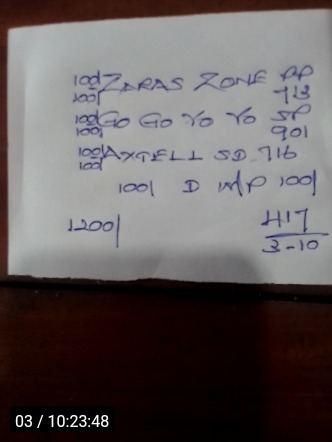 100/ ZARAS ZONE PP
100/ 713
100/ GO GO YO YO SP
100/ 901
100/ AXTELL SD 716
100/
100/ D W/P 100/
1200/ 417
3-10
03 / 10:23:48